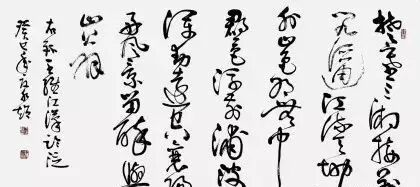 楚塞三湘接荆
门九派通江流天地
外山色有无中
郡邑浮前浦波
澜动远空襄阳
好风景留醉与
山翁
右录王维江汉临泛
癸巳